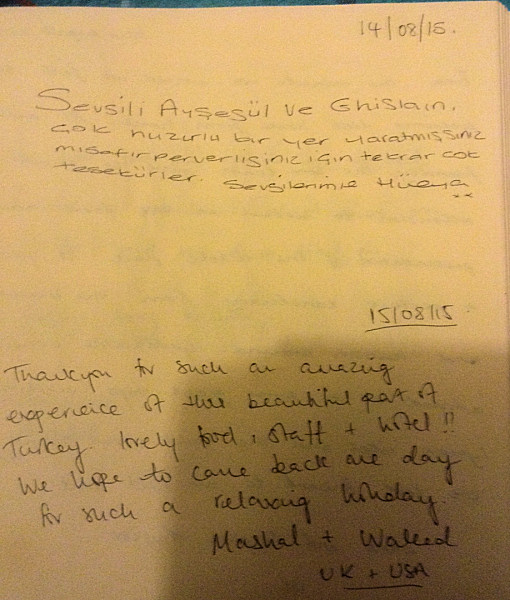 14/08/15.
Sevgili Ayşegül ve Ghislain,
Çok huzurlu bir yer yaratmışsınız
misafirperverliğiniz için tekrar çok
teşekürler. Sevgilerimle Hülya
xx
15/08/15
Thankyou for such an amazing
experience of this beautiful part of
Turkey. lovely food, staff + hotel !!
We hope to come back one day
for such a relaxing holiday.
Mashal + Waleed
UK + USA